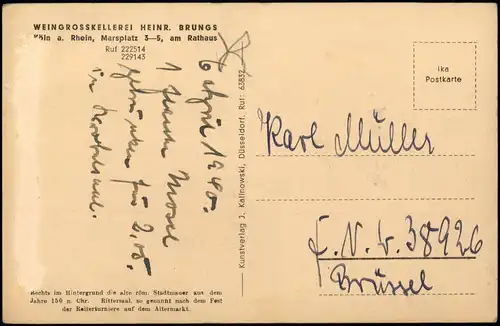 WEINGROSSKELLEREI HEINR. BRUNGS
Köln a. Rhein, Marsplatz 3—5, am Rathaus
Ruf 222514
229143
1940.
1 Mosel
für 2,05.
in
Rechts im Hintergrund die alte röm. Stadtmauer aus dem
Jahre 150 n. Chr. Rittersaal, so genannt nach dem Fest
der Reiterturniere auf dem Altermarkt.
Kunstverlag J. Kalinowski, Düsseldorf. Ruf: 63832
Ika
Postkarte
Karl Müller
F. N. W. 38926
Brüssel